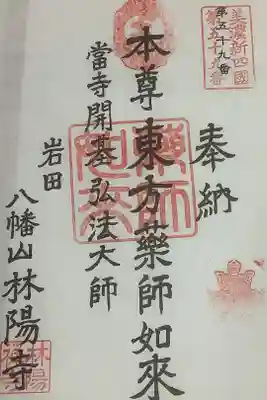 美濃新四國
第五十九番
奉納
本尊東方藥師如來
當寺開基弘法大師
岩田
八幡山林陽寺